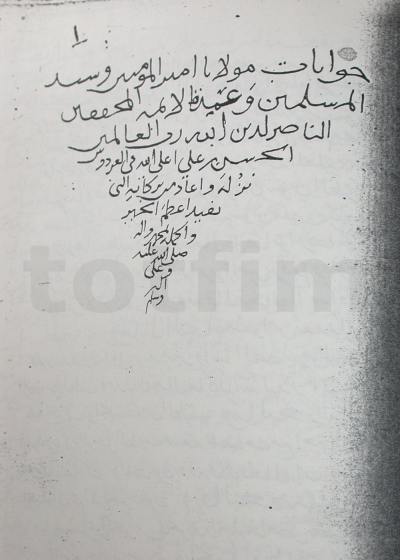 ١
جوابات مولانا امير المومنين وسيد
المسلمين وعمدة الائمة المحققين
الناصر لدين الله رب العالمين
الحسن بن علي اعلى الله في الفردوس
نزله واعاد من بركاته التي
تفيد اعظم الخير
واكمله بمحمد واله
صلى الله عليه
وعلى
اله
وسلم
totfim